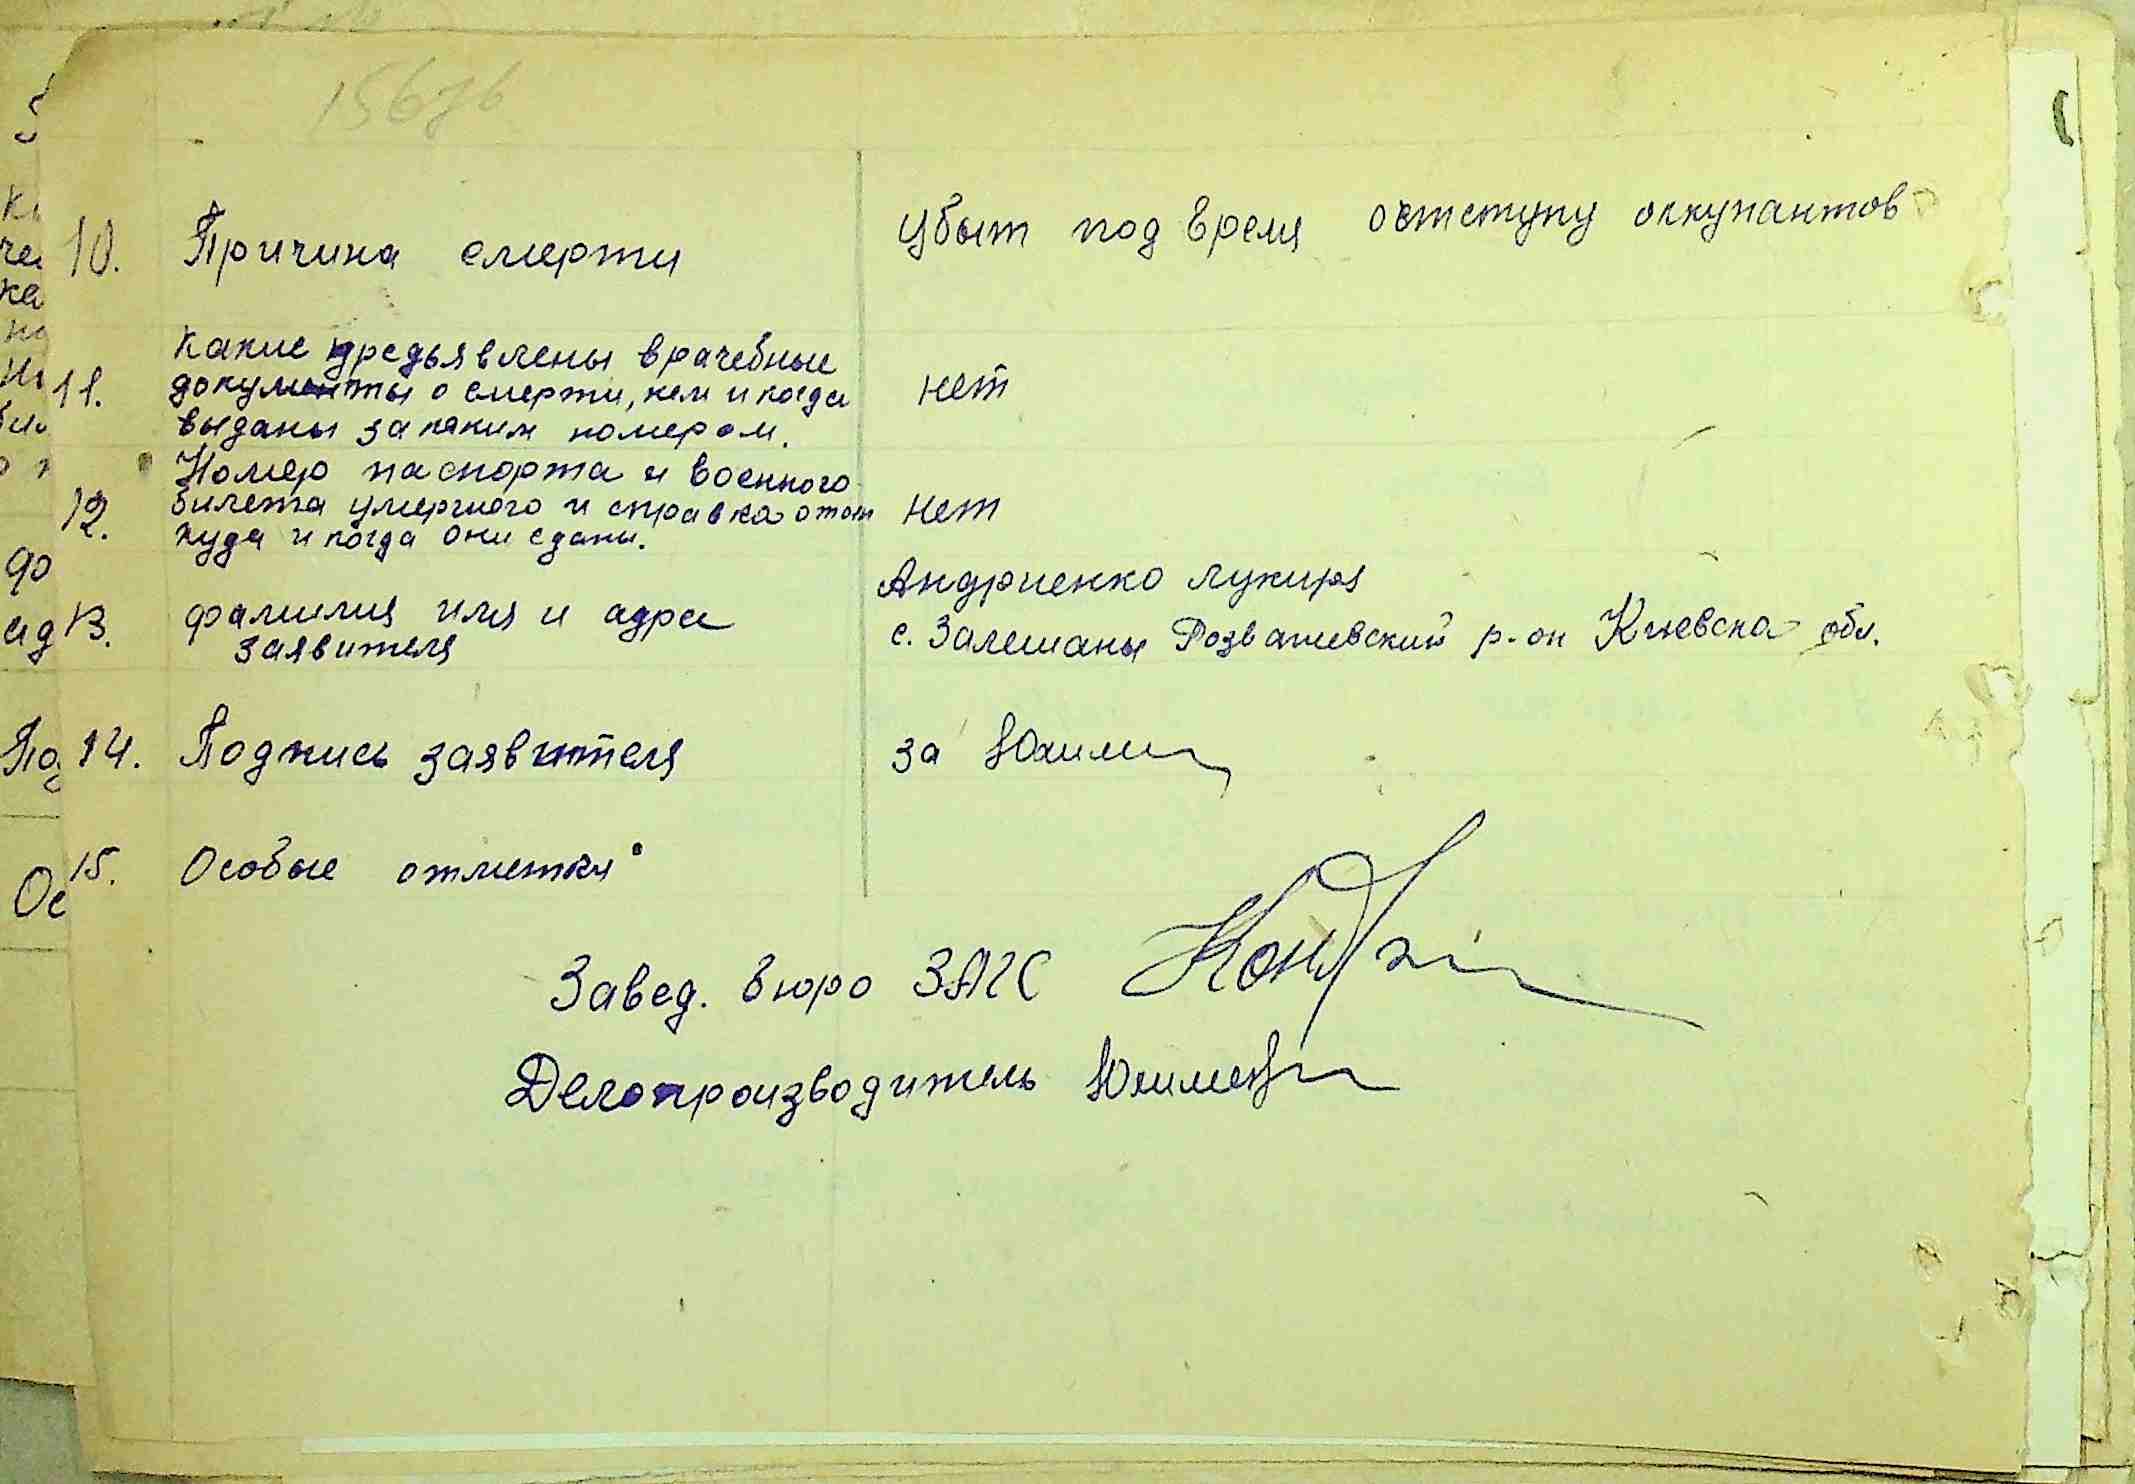 10. Причина смерти убыт под время отступу оккупантов
11. Какие предьявлены врачебные
документы о смерти, кем и когда нет
выданы за каким номером.
Номер паспорта и военного
12. билета умершого и справка о том нет
куда и когда они сданы.
Андриенко Лукиря
13. фамилия имя и адрес
с. Залешаны Розважевский р-он Киевска обл.
заявителя
14. Подпись заявителя за
15. Особые отметки
Завед. бюро ЗАГС
Делопроизводитель